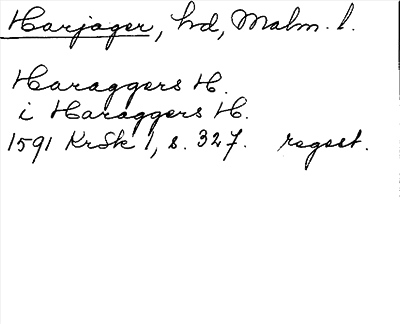 Harjager, hd, Malm. l.
Haraggers H.
i Haraggers H.
1591 KrSk 1, s. 327. regest.